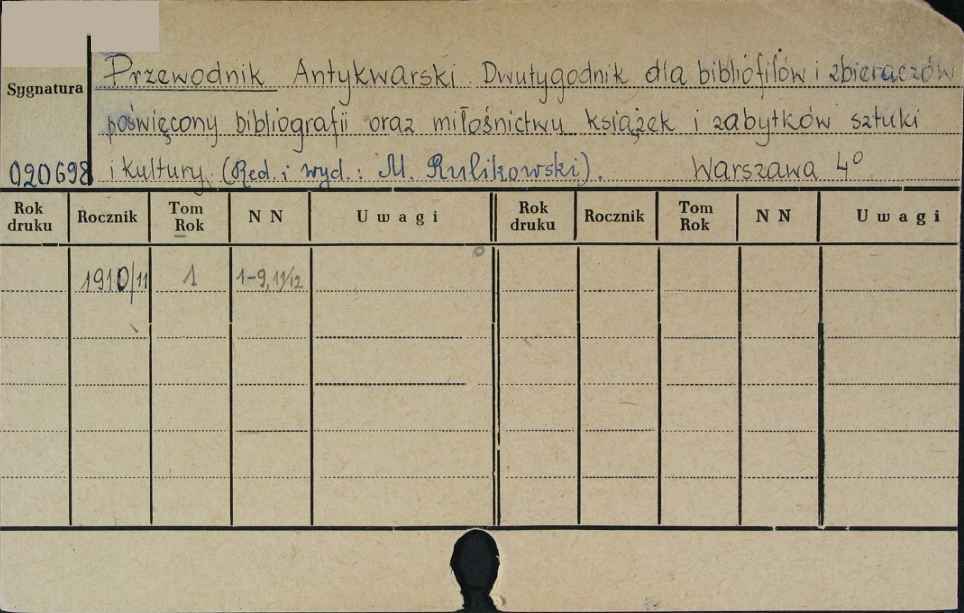 Przewodnik Antykwarski. Dwutygodnik dla bibliofilów i zbieraczów
Sygnatura
poświęcony bibliografii oraz miłośnictwu książek i zabytków sztuki
020698 i kultury. (Red. i wyd.: M. Rulikowski). Warszawa 4°
Rok druku Rocznik Tom Rok NN Uwagi Rok druku Rocznik Tom Rok NN Uwagi
1910/11 1 1-9, 11/12